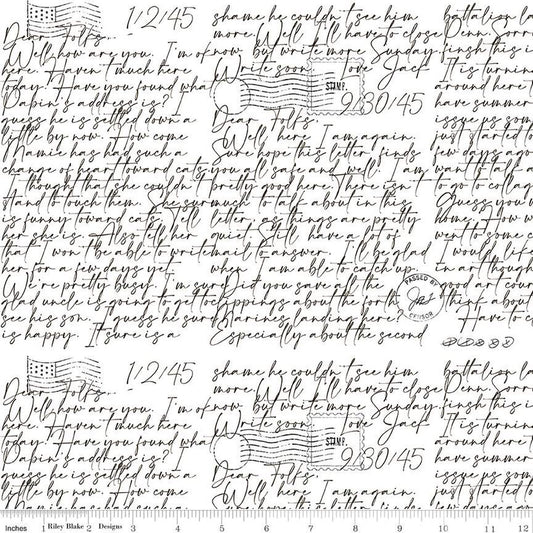 1/2/45
Dear Folks...
Well how are you. I'm of
here. Haven't much here
today. Have you found what
Papin's address is?
guess he is settled down a
little by now. How come
Mamie has had such a
change of heart toward cats
I thought that she couldn't
stand to touch them. She sure
is funny toward cats. Tell
her she is. Also tell her
that I won't be able to write
her for a few days yet.
We're pretty busy. I'm sure
glad uncle is going to get to
see his son. I guess he sure
is happy. It sure is a
shame he couldn't see him
more. Well I'll have to close
now, but write more Sunday.
Write soon. Love Jack
STAMP.
9/30/45
Dear Folks..
Well here I am again.
Sure hope this letter finds
you all safe and well. I am
pretty good here. There isn't
much to talk about in this
letter, as things are pretty
quiet. Still have a lot of
mail to answer. I'll be glad
when I am able to catch up.
Did you save all the
clippings about the forth
Marines landing here?
Especially about the second
battalion
Penn.
finsh this
It is turnin
around here
have summer
issue us som
just started t
few days ago
want to talk a
to go to collag
Guess you
home. How w
went to some
I would like
in art though
good art cour
think about
Have to c
PASSED BY
CENSOR
1/2/45
Dear Folks...
Well how are you. I'm of
here. Haven't much here
today. Have you found what
Papin's address is?
guess he is settled down a
little by now. How come
Mamie has had such a
shame he couldn't see him
more. Well I'll have to close
now, but write more Sunday.
Write soon. Love Jack
STAMP.
9/30/45
Dear Folks..
Well here I am again.
Sure hope this letter finds
battalion
Penn.
finsh this
It is turnin
around here
have summer
issue us som
just started t
few days ago
Inches 1 Riley Blake 2 Designs 3 4 5 6 7 8 9 10 11 12